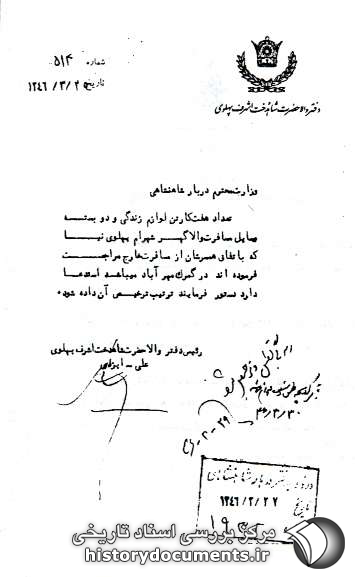 شماره ۵۱۴
تاریخ ۱۳۴۶/۳/۲۵
دفتر والاحضرت شاهدخت اشرف پهلوی
وزارت محترم دربار شاهنشاهی
تعداد هفت کارتن لوازم زندگی و دو بسته
وسایل مسافرت والاگهر شهرام پهلوی نیا
که باتفاق همسرشان از مسافرت خارج مراجعت
فرموده اند در گمرک مهرآباد میباشد استدعا
دارد دستور فرمایند ترتیب ترخیص آن داده شود.
رئیس دفتر والاحضرت شاهدخت اشرف پهلوی
علی - ایزدی
تاریخ ۱۳۴۶/۳/۲۷
مرکز بررسی اسناد تاریخی
historydocuments.ir